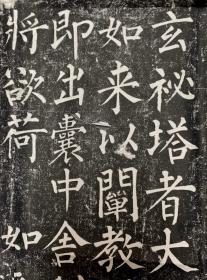 玄祕塔者大
如来以闡教
即出囊中舍
將欲荷如